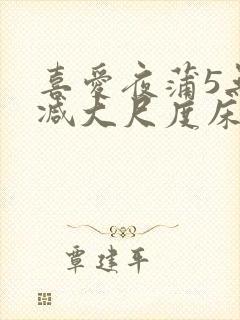 喜爱夜蒲5无
减大尺度床
覃建平